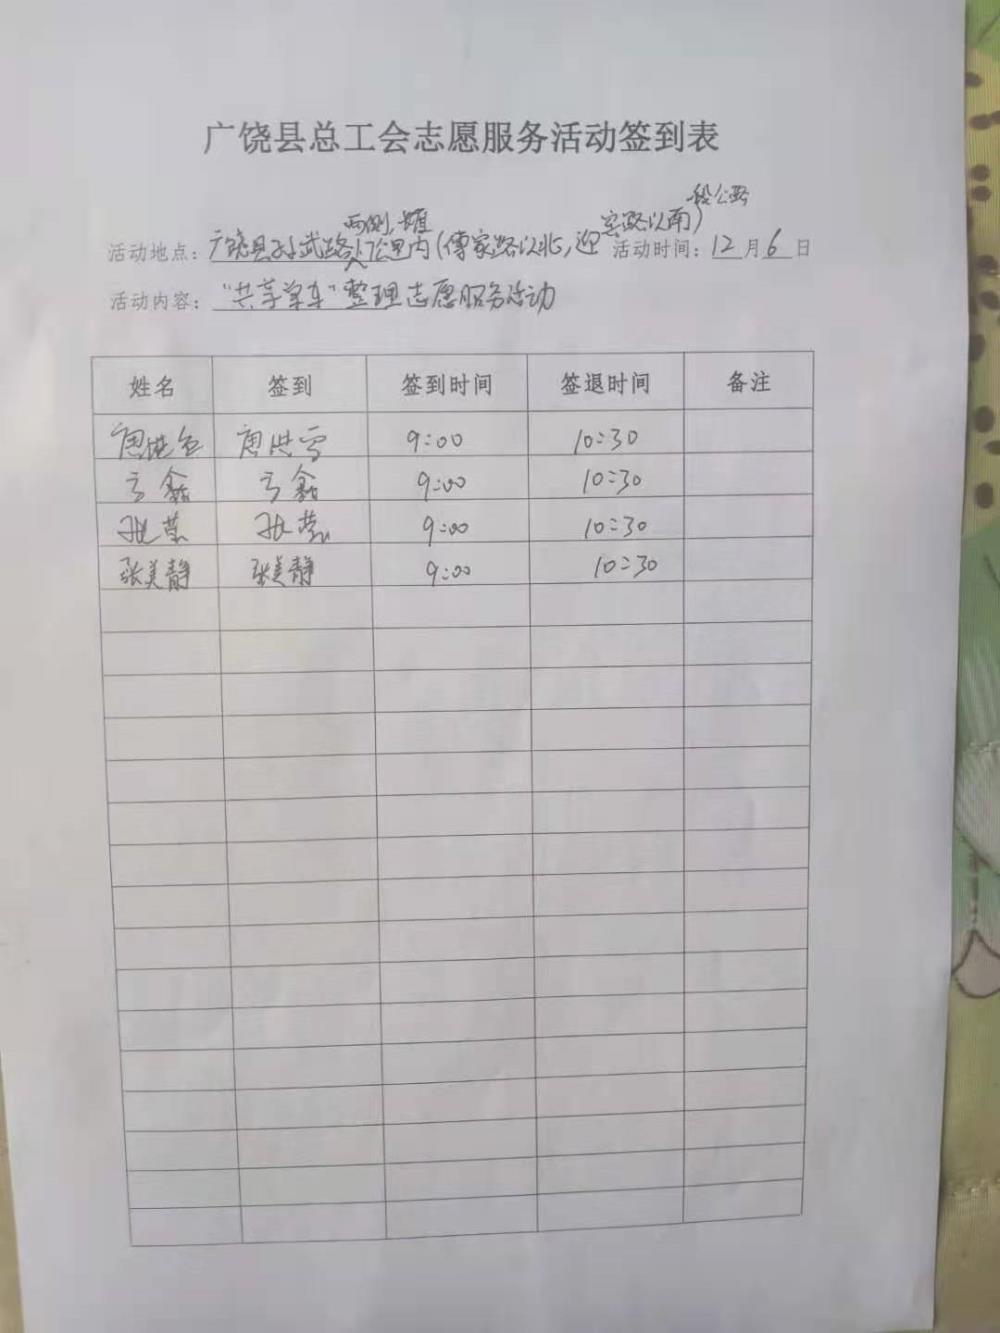 广饶县总工会志愿服务活动签到表
段公路
两侧,
宾路以南)
活动地点:广饶县孙武路17公里内(傅家路以北,迎 活动时间:12月6日
活动内容:“共享单车”整理志愿服务活动
姓名 签到 签到时间 签退时间 备注
唐洪雪 唐洪雪 9:00 10:30
鑫 鑫 9:00 10:30
张 张 9:00 10:30
张美静 张美静 9:00 10:30